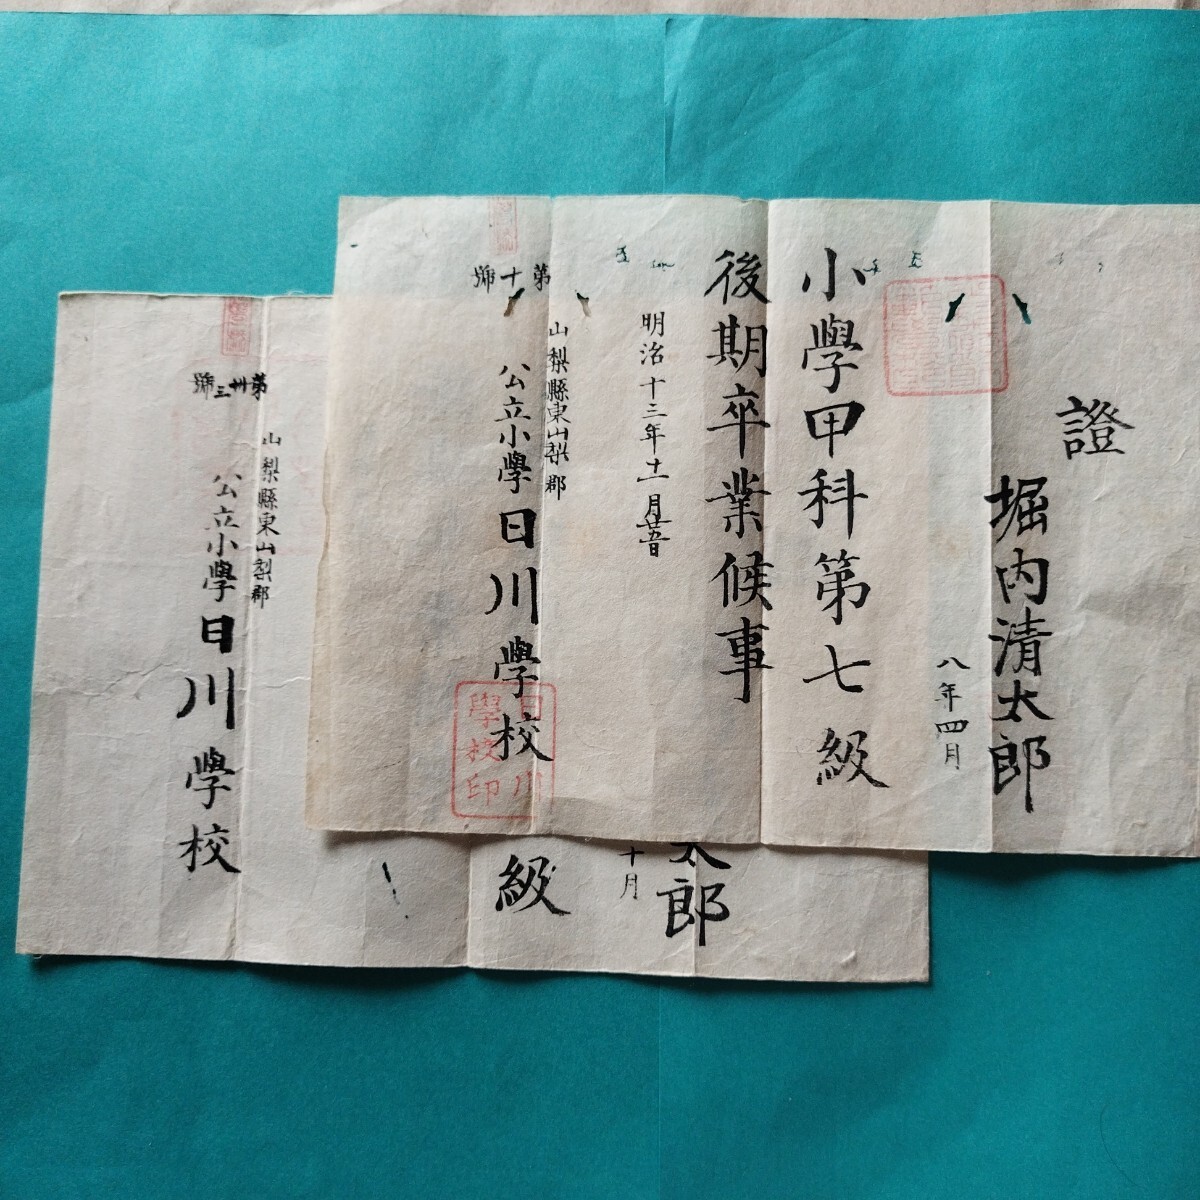 證
堀内清太郎
八年四月
小學甲科第七級
後期卒業候事
明治十三年十一月廿五日
山梨縣東山梨郡
公立小學日川學校
第十號
日川
學校印
太郎
十月
級
山梨縣東山梨郡
公立小學日川學校
第卅三號